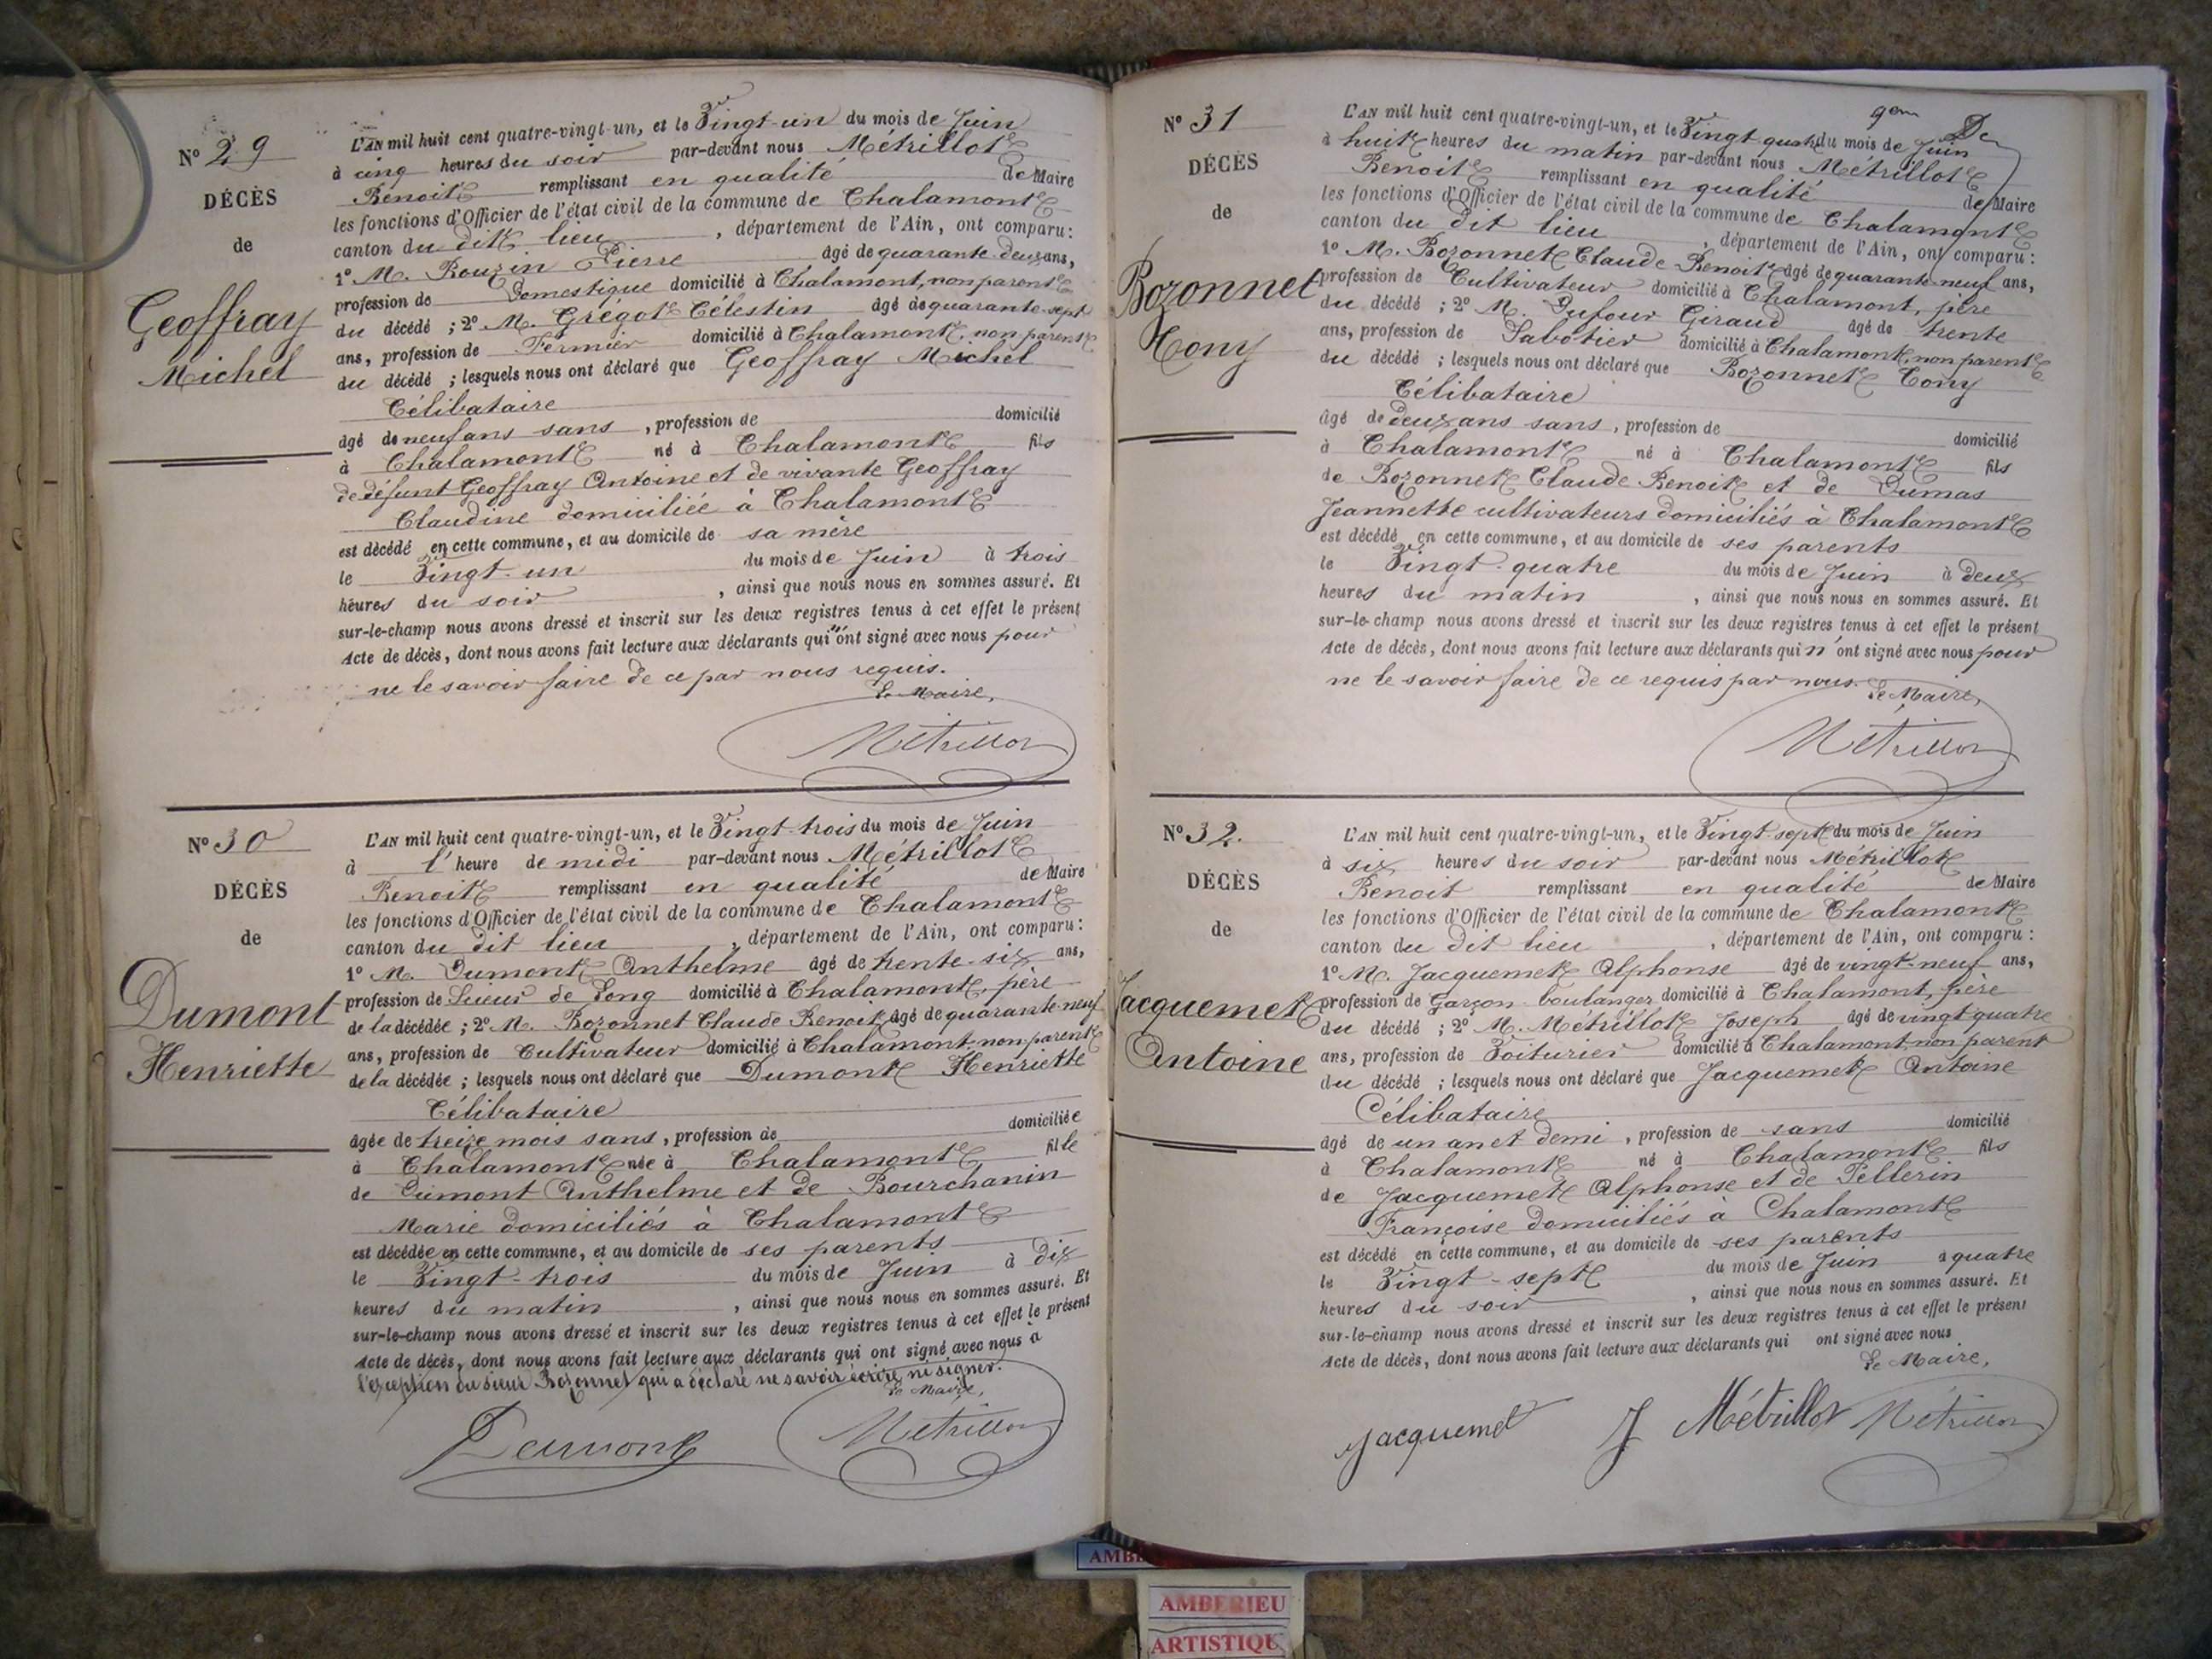 N° 29
DÉCÈS
de
Geoffray
Michel
L'AN mil huit cent quatre-vingt-un, et le Vingt-un du mois de Juin
à cinq heures du soir par-devant nous Métrillot
Benoit remplissant en qualité de Maire
les fonctions d'Officier de l'état civil de la commune de Chalamont
canton du dit lieu, département de l'Ain, ont comparu:
1° M. Bouzin Pierre âgé de quarante-deux ans,
profession de Domestique domicilié à Chalamont, non parent
du décédé ; 2° M. Grégot Célestin âgé de quarante-sept
ans, profession de Fermier domicilié à Chalamont, non parent
du décédé ; lesquels nous ont déclaré que Geoffray Michel
Célibataire
âgé de neuf ans sans, profession de domicilié
à Chalamont né à Chalamont fils
de défunt Geoffray Antoine et de vivante Geoffray
Claudine domiciliée à Chalamont
est décédé en cette commune, et au domicile de sa mère
le Vingt-un du mois de Juin à trois
heures du soir, ainsi que nous nous en sommes assuré. Et
sur-le-champ nous avons dressé et inscrit sur les deux registres tenus à cet effet le présent
Acte de décès, dont nous avons fait lecture aux déclarants qui n'ont signé avec nous pour
ne le savoir faire de ce par nous requis.
Le Maire,
Métrillot
N° 30
DÉCÈS
de
Dumont
Henriette
L'AN mil huit cent quatre-vingt-un, et le Vingt-trois du mois de Juin
à l'heure de midi par-devant nous Métrillot
Benoit remplissant en qualité de Maire
les fonctions d'Officier de l'état civil de la commune de Chalamont
canton du dit lieu, département de l'Ain, ont comparu:
1° M. Dumont Anthelme âgé de trente-six ans,
profession de Scieur de Long domicilié à Chalamont, père
de la décédée ; 2° M. Bozonnet Claude Benoit âgé de quarante-neuf
ans, profession de Cultivateur domicilié à Chalamont non parent
de la décédée ; lesquels nous ont déclaré que Dumont Henriette
Célibataire
âgée de treize mois sans, profession de domiciliée
à Chalamont née à Chalamont fille
de Dumont Anthelme et de Bourchanin
Marie domiciliés à Chalamont
est décédée en cette commune, et au domicile de ses parents
le Vingt-trois du mois de Juin à dix
heures du matin, ainsi que nous nous en sommes assuré. Et
sur-le-champ nous avons dressé et inscrit sur les deux registres tenus à cet effet le présent
Acte de décès, dont nous avons fait lecture aux déclarants qui ont signé avec nous à
l'exception du sieur Bozonnet qui a déclaré ne savoir écrire ni signer.
Le Maire,
Dumont Métrillot
N° 31
DÉCÈS
de
Bozonnet
Tony
L'AN mil huit cent quatre-vingt-un, et le Vingt quatre du mois de Juin
à huit heures du matin par-devant nous Métrillot
Benoit remplissant en qualité de Maire
les fonctions d'Officier de l'état civil de la commune de Chalamont
canton du dit lieu, département de l'Ain, ont comparu:
1° M. Bozonnet Claude Benoit âgé de quarante-neuf ans,
profession de Cultivateur domicilié à Chalamont, père
du décédé ; 2° M. Dufour Geraud âgé de trente
ans, profession de Sabotier domicilié à Chalamont, non parent
du décédé ; lesquels nous ont déclaré que Bozonnet Tony
Célibataire
âgé de deux ans sans, profession de domicilié
à Chalamont né à Chalamont fils
de Bozonnet Claude Benoit et de Dumas
Jeannette cultivateurs domiciliés à Chalamont
est décédé en cette commune, et au domicile de ses parents
le Vingt-quatre du mois de Juin à deux
heures du matin, ainsi que nous nous en sommes assuré. Et
sur-le-champ nous avons dressé et inscrit sur les deux registres tenus à cet effet le présent
Acte de décès, dont nous avons fait lecture aux déclarants qui n'ont signé avec nous pour
ne le savoir faire de ce requis par nous.
Le Maire,
Métrillot
N° 32.
DÉCÈS
de
Jacquemet
Antoine
L'AN mil huit cent quatre-vingt-un, et le Vingt-sept du mois de Juin
à six heures du soir par-devant nous Métrillot
Benoit remplissant en qualité de Maire
les fonctions d'Officier de l'état civil de la commune de Chalamont
canton du dit lieu, département de l'Ain, ont comparu :
1° M. Jacquemet Alphonse âgé de vingt-neuf ans,
profession de Garçon boulanger domicilié à Chalamont, père
du décédé ; 2° M. Métrillot Joseph âgé de vingt quatre
ans, profession de Voiturier domicilié à Chalamont, non parent
du décédé ; lesquels nous ont déclaré que Jacquemet Antoine
Célibataire
âgé de un an et demi, profession de sans domicilié
à Chalamont né à Chalamont fils
de Jacquemet Alphonse et de Pellerin
Françoise domiciliés à Chalamont
est décédé en cette commune, et au domicile de ses parents
le Vingt-sept du mois de Juin à quatre
heures du soir, ainsi que nous nous en sommes assuré. Et
sur-le-champ nous avons dressé et inscrit sur les deux registres tenus à cet effet le présent
Acte de décès, dont nous avons fait lecture aux déclarants qui ont signé avec nous
Le Maire,
Jacquemet J Métrillot Métrillot
AMBERIEU
ARTISTIQUE